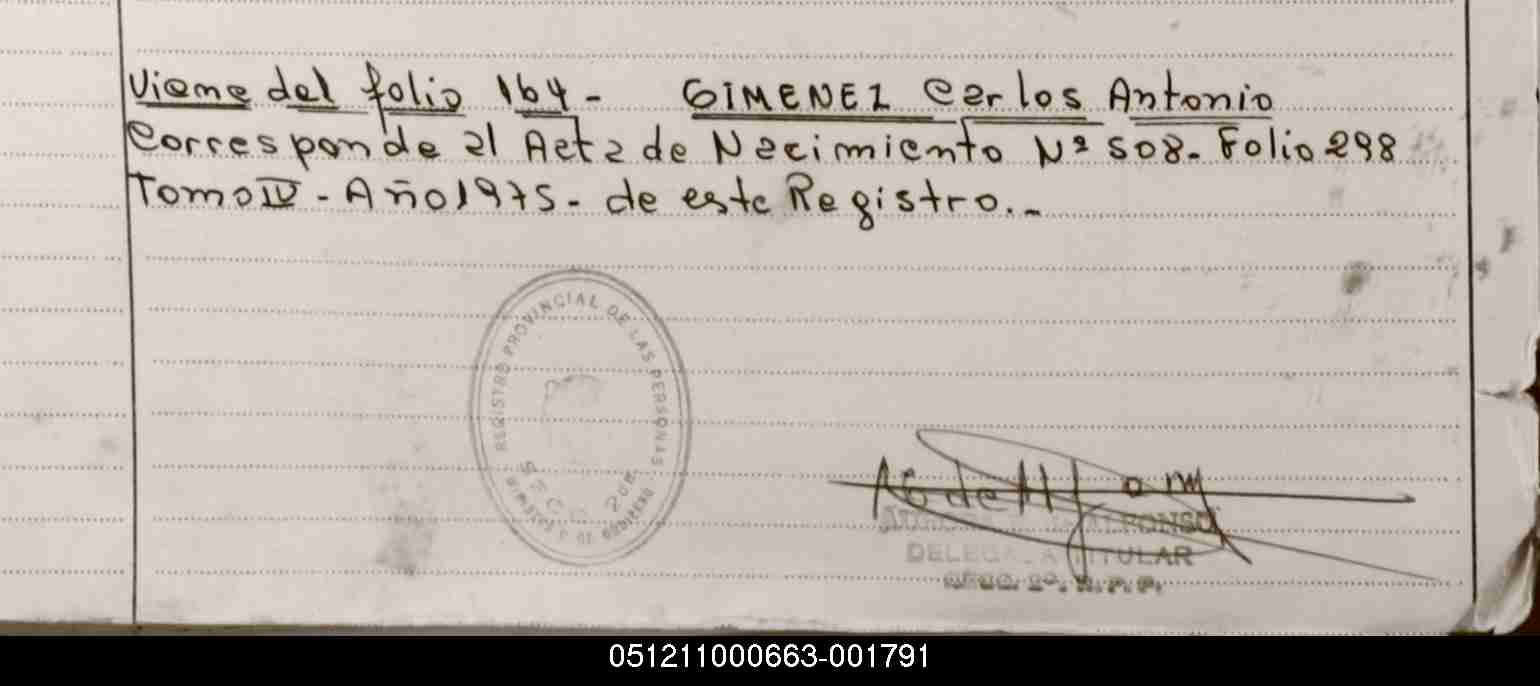 Viene del folio 164 - GIMENEZ Carlos Antonio
Corresponde al Acta de Nacimiento Nº 508. Folio 298
Tomo IV - Año 1975 - de este Registro. -
REGISTRO PROVINCIAL DE LAS PERSONAS
SECC. 2DA
MINISTERIO DE GOBIERNO
ALFONSO
DELEGADA TITULAR
051211000663-001791